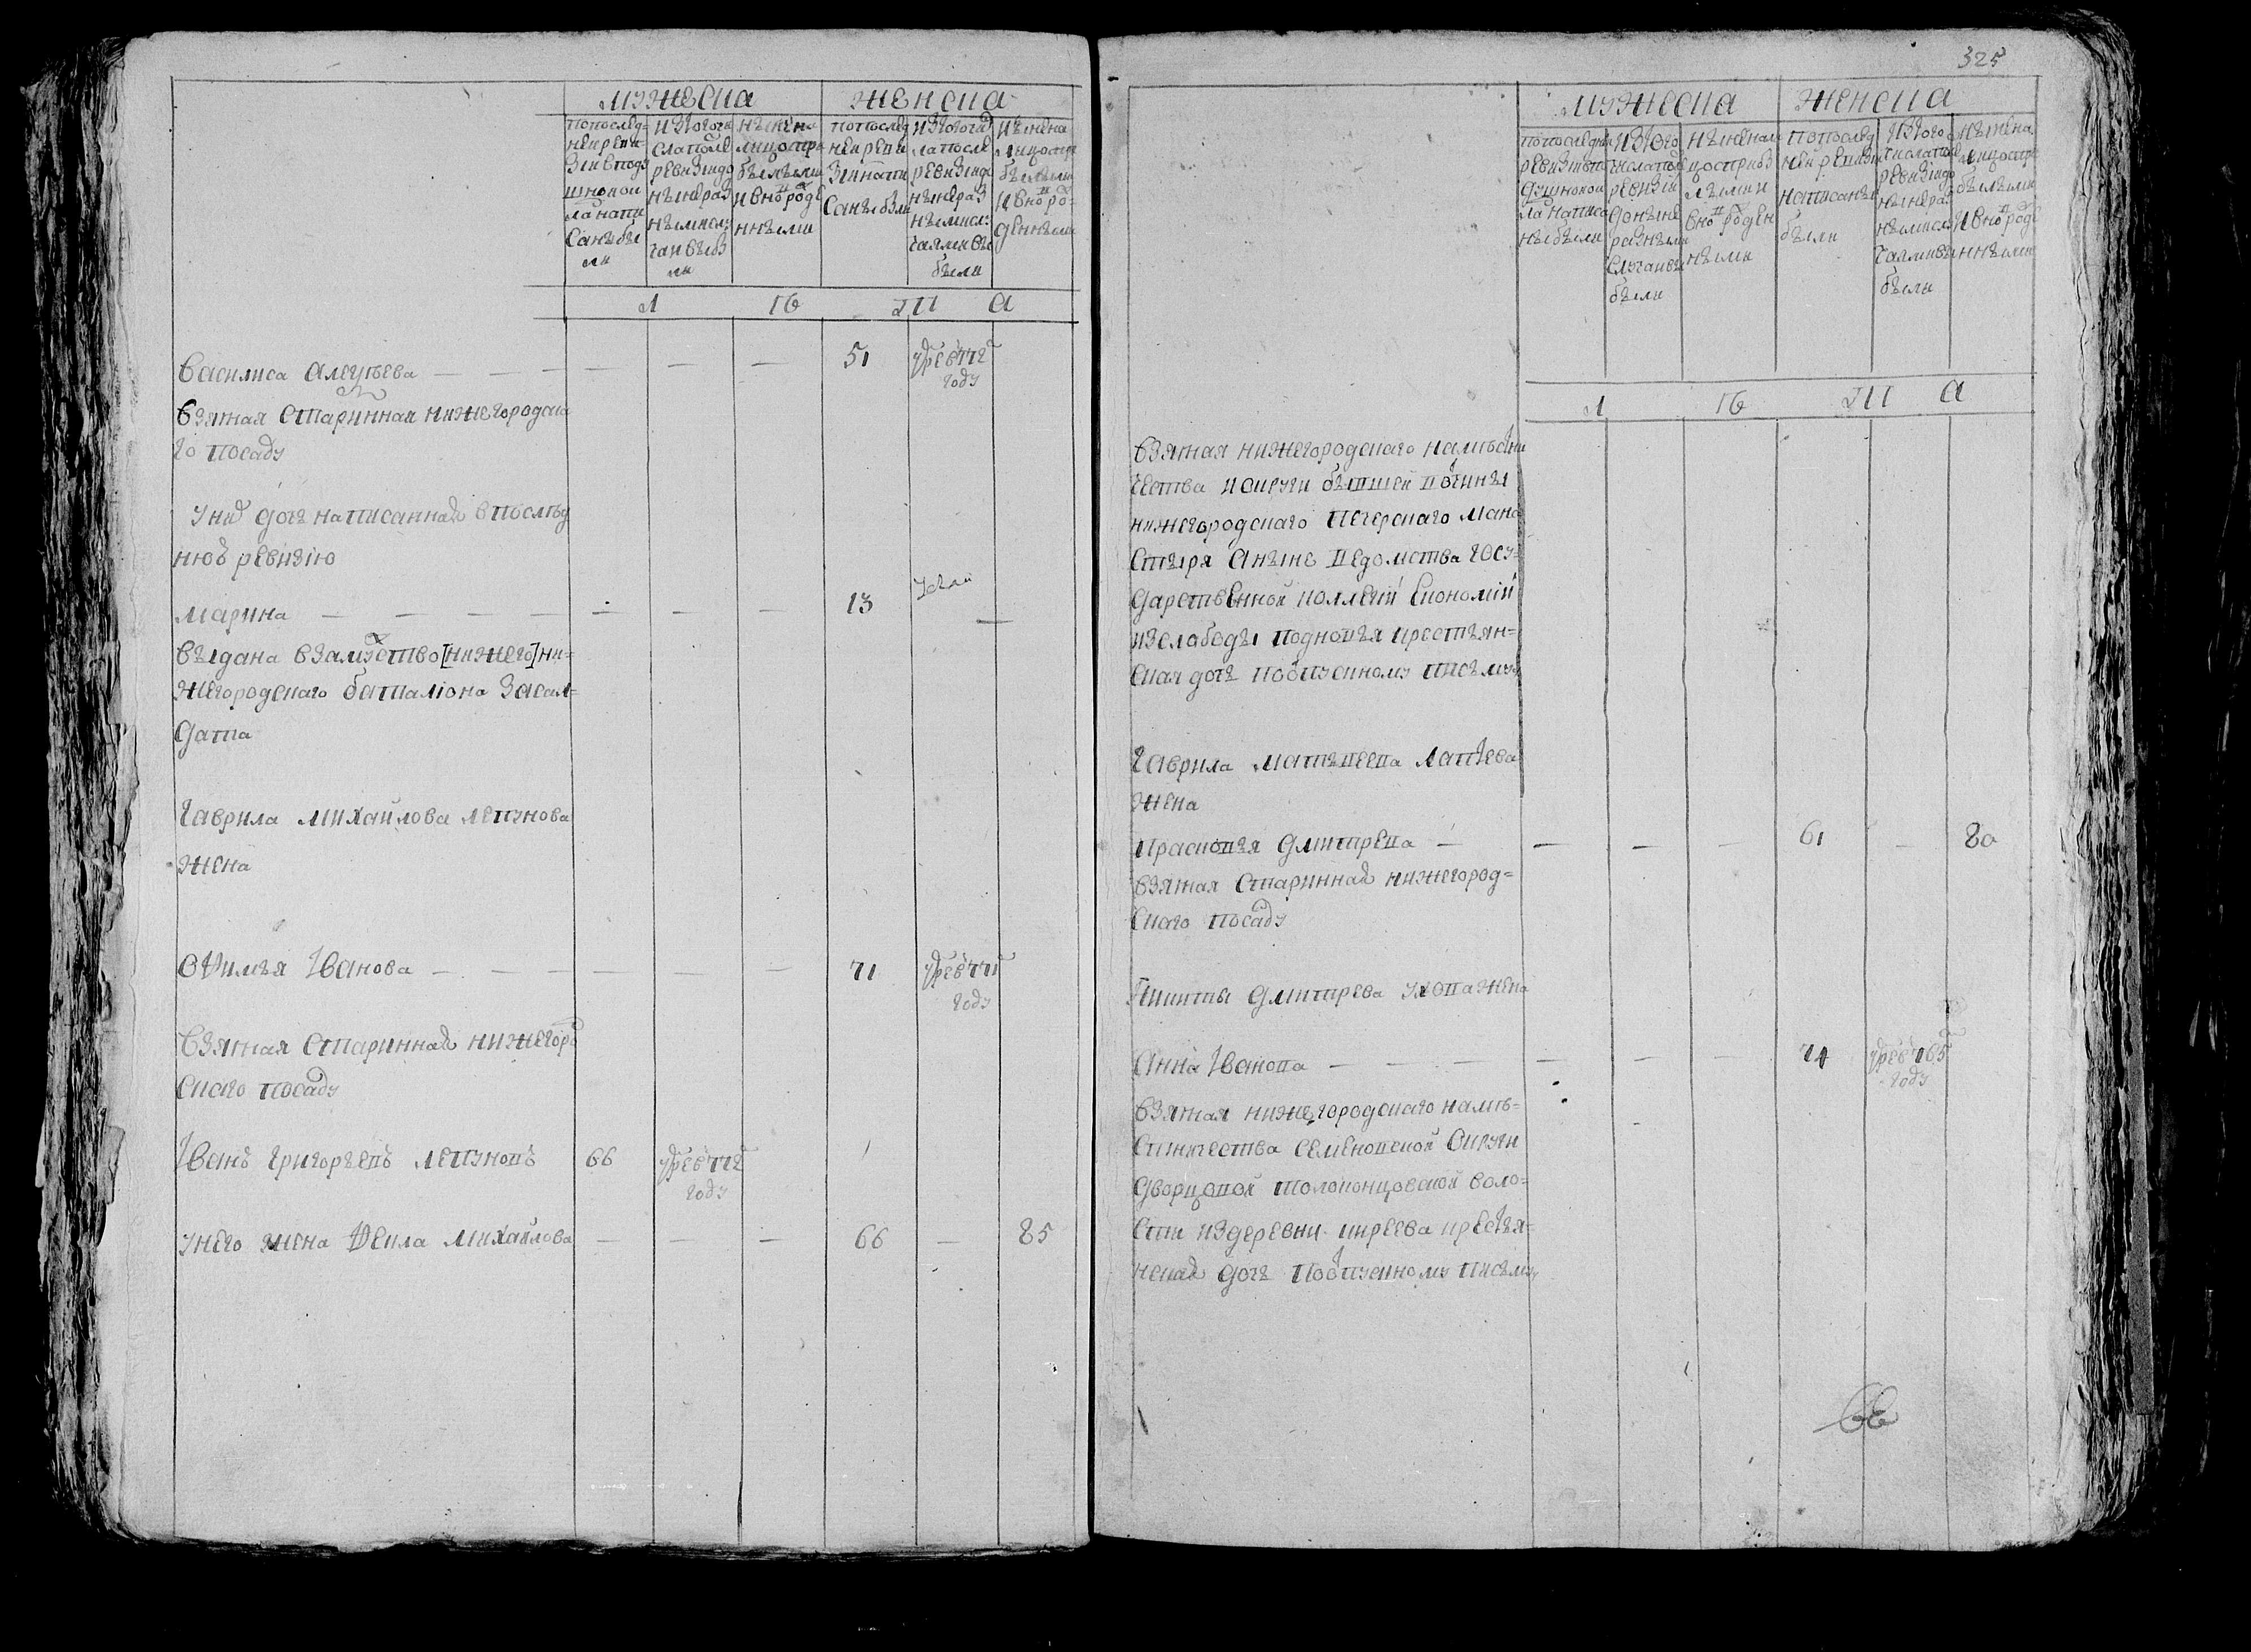 мужеска женска
попослед-
ней реви-
зии вподу
шной ок
ла напи
саны бы
ли
изтого чи
сла после
ревизиидо
ныне раз
ными слу
чаи выбы
ли
ныне на
лицо при
былыми
и вновь рожде
нными
попослед
ней реви
зии напи
саны были
изтого чис
ла после
ревизии до
ныне раз
ными слу
чаями вы
были
ныне на
лицо при
былыми
и вновь ро-
жденными
л те та
василиса алеѯеева — — — — — — 51 умре в 776 году
взятая стариннаи нижегородска
го посаду
у них дочь написанная в послед
нюю ревизию
марина — — — — — — — 13 —
выдана взамуство [нижего] ни-
жегородскаго баталиона засол-
дата
гаврила михайлова лепунова
жена
Ѳѵимья иванова — — — — — — 71 умре в 771 году
взятая стариннай нижегоро
скаго посаду
иванъ григорьевъ лепуновъ 66 умре в 776 году
у него жена Ѳекла михайлова — — — 66 — 85
325
мужеска женска
попоследней
ревизии впо
душной ок
ла написа
ны были
из того
числа после
ревизии
до ныне
разными
случаи вы
были
ныне нали
цо прибы
лыми и
вновь рожден
ными
попослед
ней ревизии
написаны
были
из того
числа после
ревизии до
ныне раз
ными слу
чаями вы
были
ныне на
лицо при
былыми
и вновь рожде
нными
л те та
взятая нижегородскаго наместни
чества и округи бывшей вотчины
нижегородскаго печерскаго мана
стыря аныне ведомства госу-
дарственной коллегии економии
изслободы подновья крестьян-
ская дочь поотпускному письму
гаврила матвеева лаптева
жена
прасковья дмитрева — — — — 61 — 80
взятая стариннай нижегород-
скаго посаду
никиты дмитрева ухова жена
анна иванова — — — — — — 74 умре в 765 году
взятая нижегородскаго наме-
стничества семеновской округи
дворцовой толоконцовской воло-
сти издеревни киреева крестья-
нская дочь поотпускному письму